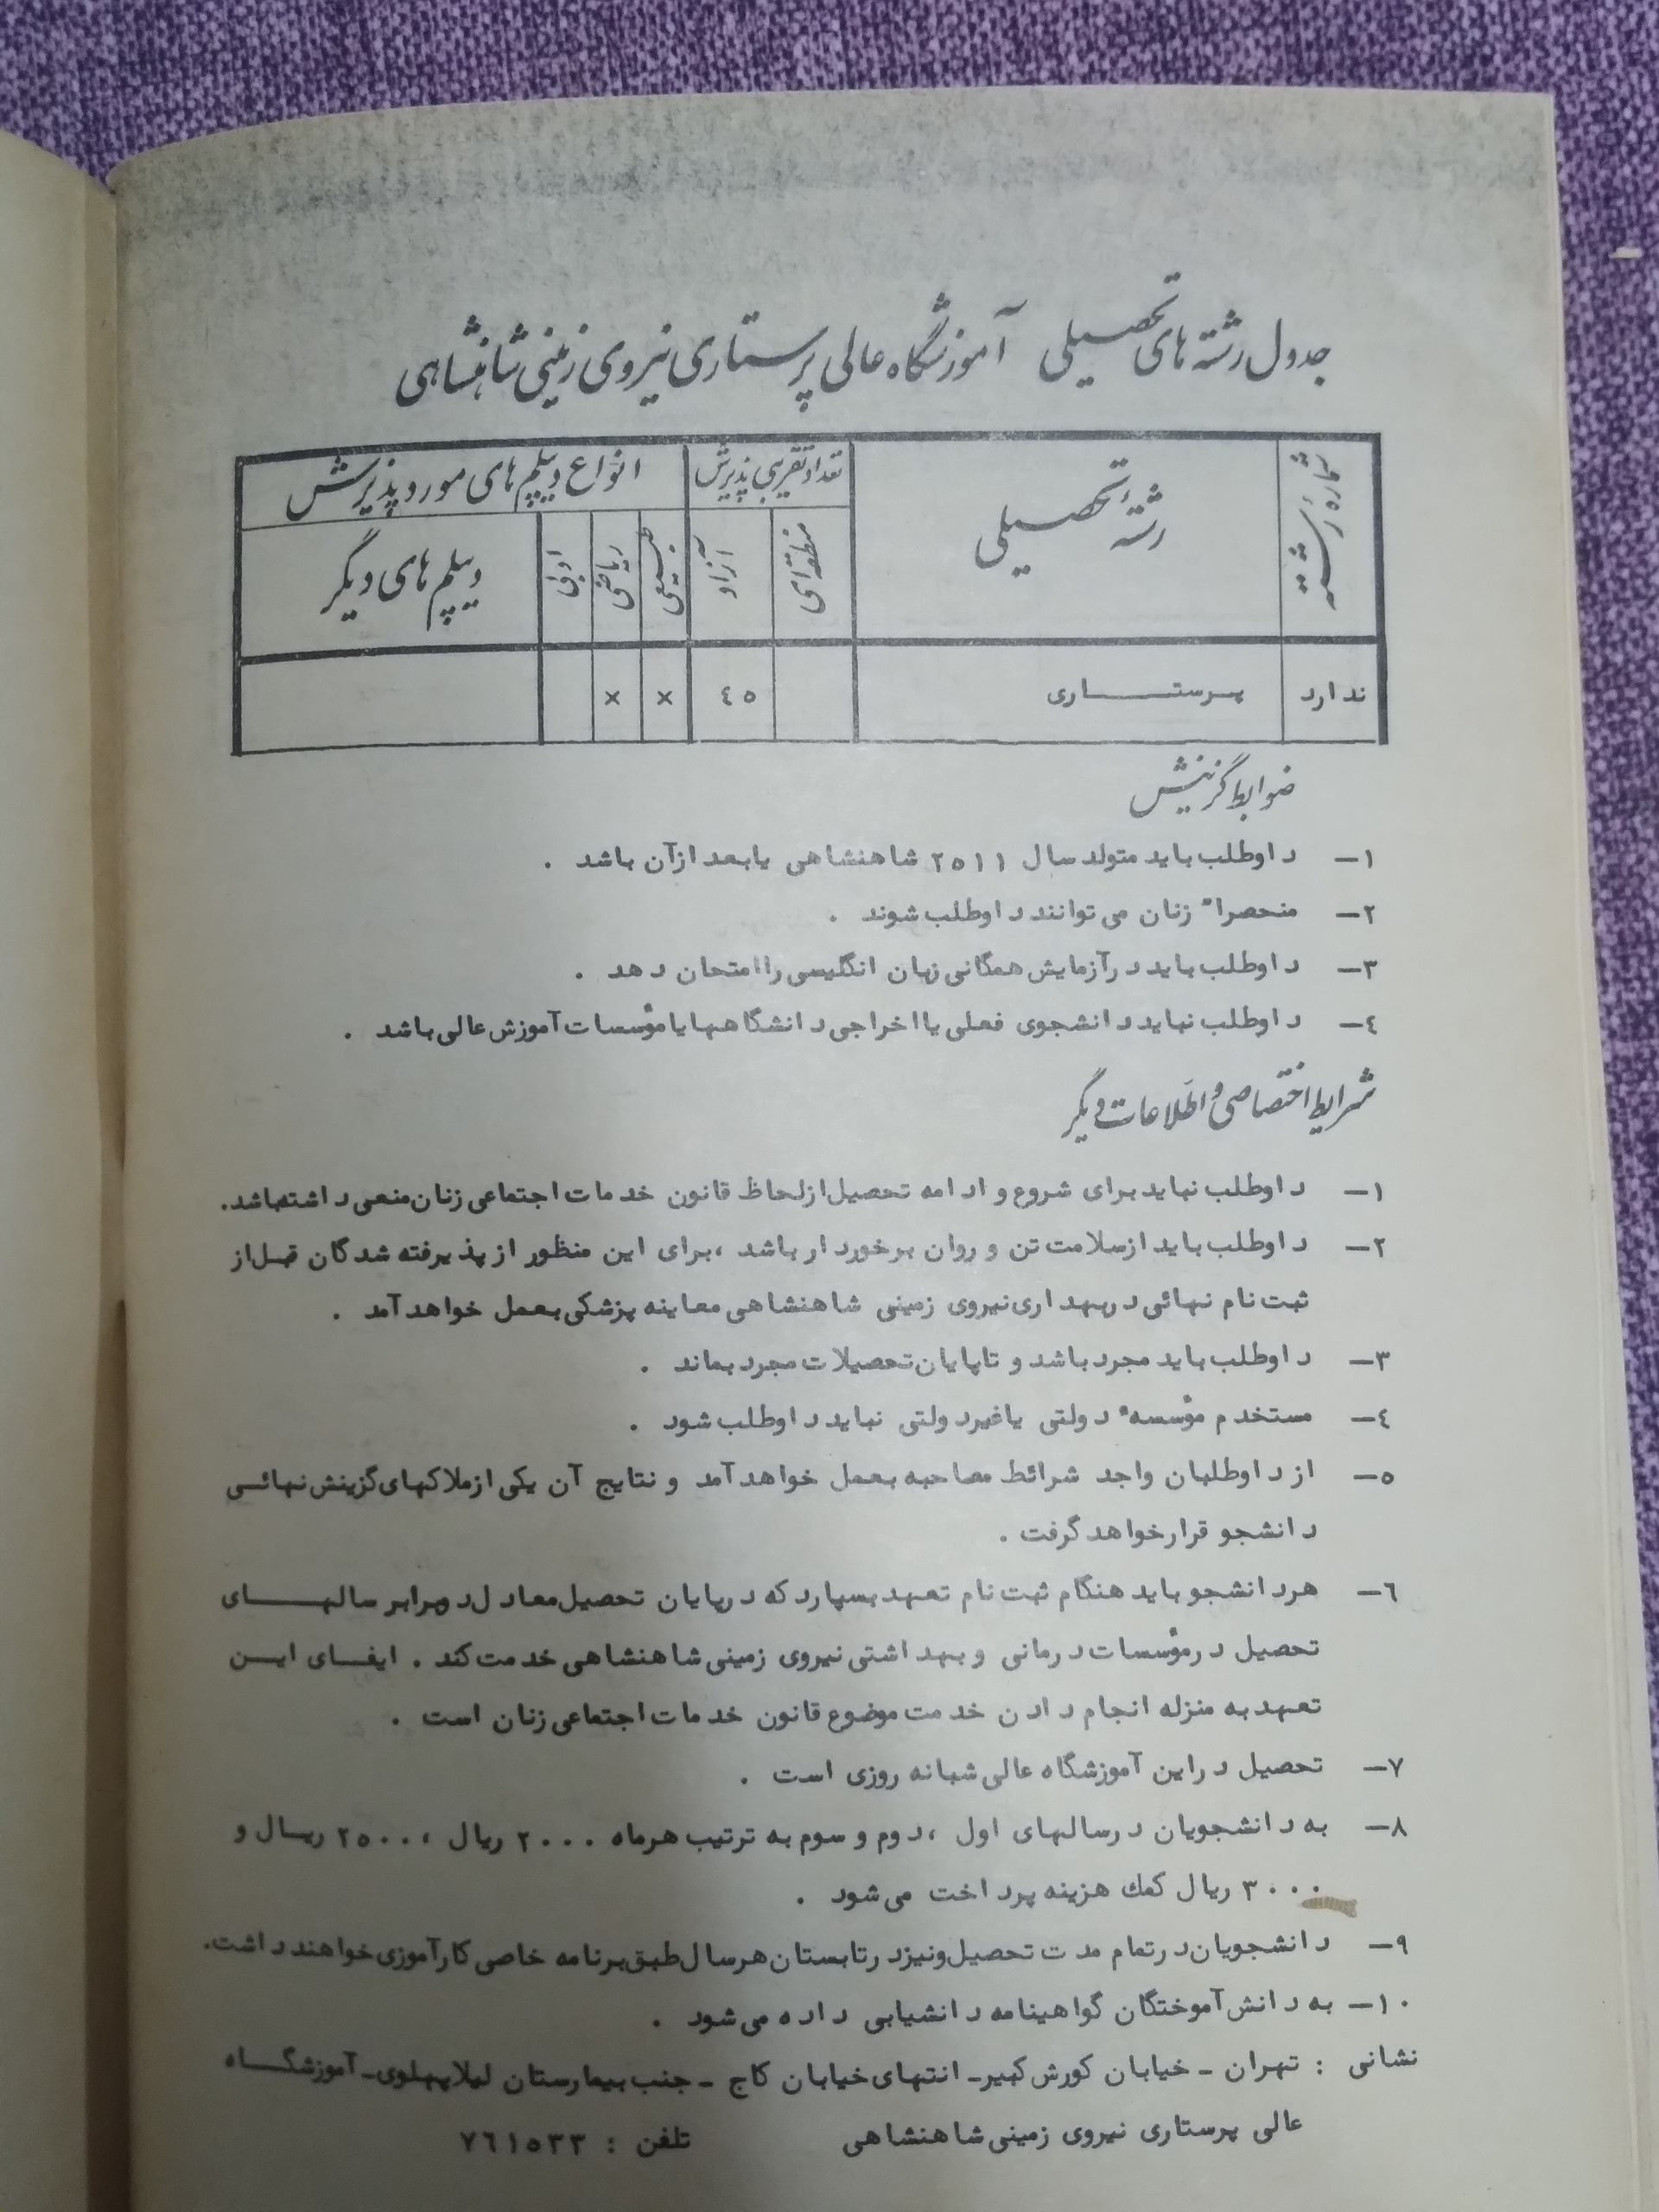 جدول رشته های تحصیلی آموزشگاه عالی پرستاری نیروی زمینی شاهنشاهی
شماره رشته
رشتهٔ تحصیلی
تعداد تقریبی پذیرش
انواع دیپلم های مورد پذیرش
منطقه ای
آزاد
طبیعی
ریاضی
ادبی
دیپلم های دیگر
ندارد پرستــــاری ٤٥ × ×
ضوابط گزینش
١– داوطلب باید متولد سال ٢٥١١ شاهنشاهی یا بعد از آن باشد .
٢– منحصراً زنان می توانند داوطلب شوند .
٣– داوطلب باید در آزمایش همگانی زبان انگلیسی را امتحان دهد .
٤– داوطلب نباید دانشجوی فعلی یا اخراجی دانشگاهها یا مؤسسات آموزش عالی باشد .
شرایط اختصاصی و اطلاعات دیگر
١– داوطلب نباید برای شروع و ادامه تحصیل از لحاظ قانون خدمات اجتماعی زنان منعی داشته باشد.
٢– داوطلب باید از سلامت تن و روان برخوردار باشد ، برای این منظور از پذیرفته شدگان قبل از
ثبت نام نهائی در بهداری نیروی زمینی شاهنشاهی معاینه پزشکی بعمل خواهد آمد .
٣– داوطلب باید مجرد باشد و تا پایان تحصیلات مجرد بماند .
٤– مستخدم مؤسسهٔ دولتی یا غیردولتی نباید داوطلب شود .
٥– از داوطلبان واجد شرائط مصاحبه بعمل خواهد آمد و نتایج آن یکی از ملاکهای گزینش نهائــی
دانشجو قرار خواهد گرفت .
٦– هر دانشجو باید هنگام ثبت نام تعهد بسپارد که در پایان تحصیل معادل دو برابر سالهــــای
تحصیل در مؤسسات درمانی و بهداشتی نیروی زمینی شاهنشاهی خدمت کند . ایفــای ایــن
تعهد به منزله انجام دادن خدمت موضوع قانون خدمات اجتماعی زنان است .
٧– تحصیل در این آموزشگاه عالی شبانه روزی است .
٨– به دانشجویان در سالهای اول ، دوم و سوم به ترتیب هر ماه ٢٠٠٠ ریال ، ٢٥٠٠ ریـال و
٣٠٠٠ ریال کمك هزینه پرداخت می شود .
٩– دانشجویان در تمام مدت تحصیل و نیز در تابستان هر سال طبق برنامه خاصی کارآموزی خواهند داشت.
١٠– به دانش آموختگان گواهینامه دانشیابی داده می شود .
نشانی : تهران – خیابان کورش کبیر– انتهای خیابان کاج – جنب بیمارستان لیلا پهلوی – آموزشگــاه
عالی پرستاری نیروی زمینی شاهنشاهی تلفن : ٧٦١٥٣٣